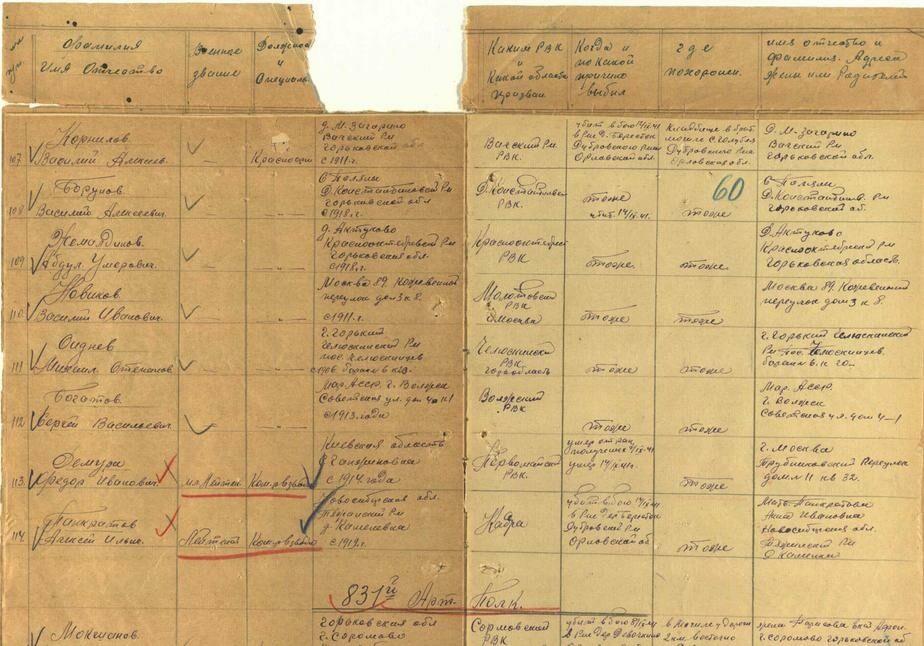 Фамилия
Имя Отчество
Военное
звание
Должнос
и
Специальн.
Каким РВК
и
Какой области
призван
Когда и
по какой
причине
выбыл
где
похоронен.
имя отчество и
фамилия. Адрес
жены или Родителей
107
Корнилов
Василий Алексеев.
Красноарм
д. М. Загарино
Вачский Р-н
Горьковской обл
с 1911 г.
Вачский
РВК.
убит в бою 14/IX-41
Дубровского Р-на
Орловской обл.
Кладбище в брат
могиле с. Голубея
Дубровского Р-на
Орловская обл.
Д. М. Загарино
Вачский Р-н
Горьковской обл.
60
108
Борунов
Василий Алексеевич.
-"-
с Поляны
Д. Константиновский Р-н
Горьковской обл
с 1918 г.
Д. Константинов
РВК.
тоже
убит 14/IX-41.
тоже
с Поляны
Д. Константинов. Р-н
Горьковской об.
109
Абдул Умарович.
-"- -"-
д. Актуково
Краснооктябрьский Р-н
Горьковской обл
с 1918 г.
Краснооктябрьс
РВК
тоже
тоже
Д. Актуково
Краснооктябрьск Р-н
Горьковская область.
110
Новиков
Василий Иванович.
-"- -"-
Москва 89. Кожевнический
переулок дом 3 к 8.
с 1911 г.
Молотовский
РВК
г Москва
тоже
тоже
Москва 89. Кожевнический
переулок дом 3 к 8.
111
Михаил Степанов
-"- -"-
г. Горький
Челюскинский Р-н
пос. Челюскинцев
Челюскинский
РВК
Горьк область
тоже
тоже
г. Горький Челюскинский
Р-н пос. Челюскинцев.
112
Богатов
Сергей Васильевич.
Мар. Асср. г. Волжск
Советская ул. дом 4 к 1
с 1913 года
Волжский
РВК
тоже
тоже
Мар. Асср.
г. Волжск
Советская ул. дом 4-1
113
Федор Иванович.
мл. Лейтен Ком. взвода
Киевская область
с 1914 года
Первомайский
РВК.
умер от ран
умер 14/IX-41 г.
тоже
г. Москва
Трубниковский Переулок
дом № 11 кв 32.
114
Панкратов
Алексей Ильич.
Лейтент Ком. взвода
Новосибирская обл.
Тяжинский Р-н
д. Каменевка
с 1919 г.
Кадра
убит в бою 14/IX-41
Дубровский Р-н
Орловской об
тоже
Мать Панкратова
Ивановна
Новосибирская обл.
Тяжинский Р-н
831й Арт. Полк.
Горьковская обл
г. Сормово
Сормовский
РВК
убит в бою
в могиле у дороги
2 км. восточно
г. Сормово Горьковской об